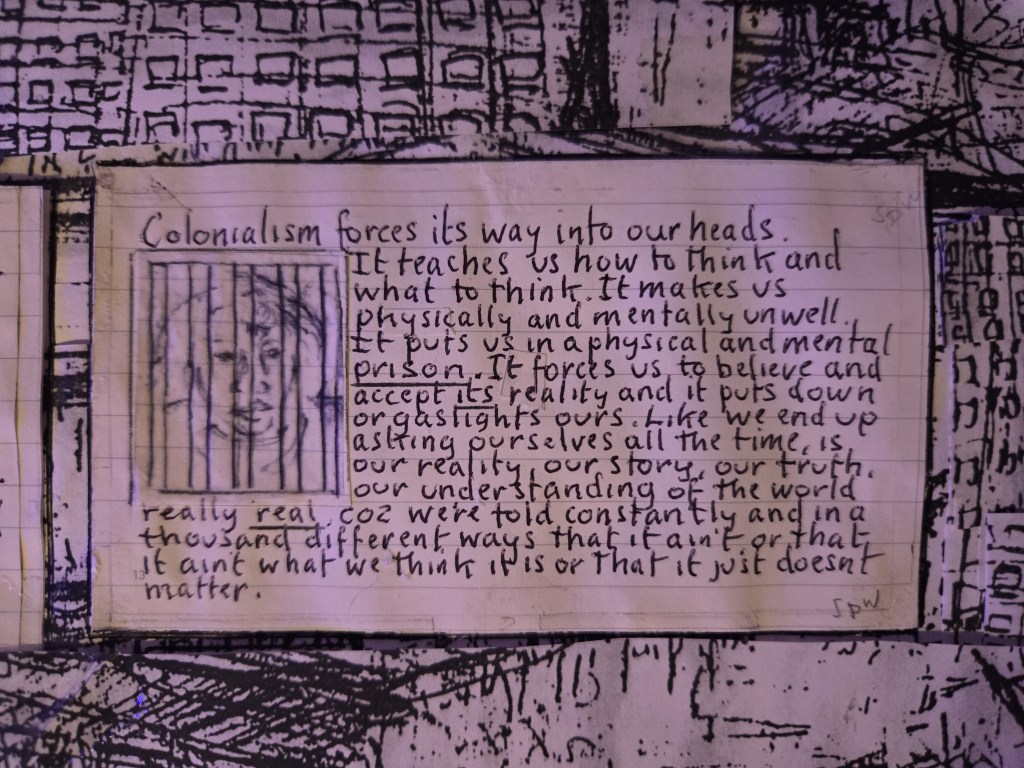 Colonialism forces its way into our heads.
It teaches us how to think and
what to think. It makes us
physically and mentally unwell.
It puts us in a physical and mental
prison. It forces us to believe and
accept its reality and it puts down
or gaslights ours. Like we end up
asking ourselves all the time, is
our reality, our story, our truth,
our understanding of the world
really real, coz were told constantly and in a
thousand different ways that it ain't or that
it aint what we think it is or that it just doesnt
matter.
13
spw